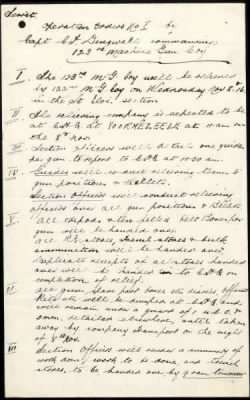 Secret
Operation Orders No I by
Capt Commanding
123rd Machine Gun Coy
I The 123rd M.G. Coy will be relieved
by 122nd M G Coy on Wednesday Nov 8.16
in the St Eloi section
II The relieving company is expected to be
at C.H.Q at VOORMEZEELE at 11 am on
the 8th Nov.
III Section officers will detail one guide
per gun to report to C.H.Q at 10.30 am
IV Guides will conduct relieving teams to
gun positions &
Section officers will conduct relieving
officers over all gun positions &
V All tripods & ten filled belt boxes per
gun will be handed over.
All R.E. stores, trench stores & bulk
ammunition will be handed over.
Duplicate receipts of all stores handed
over will be handed to C.H.Q on
completion of relief.
VI All guns, spare part boxes etc, officers
kits etc will be dumped at C.H.Q and
will remain under a guard of 1 N.C.O. &
6 men, detailed elsewhere, until taken
away by company transport on the night
of 8th Nov.
VII Section Officers will render a summary of
work done, work to be done, and trench
stores, to be handed over by 9 am tomorrow